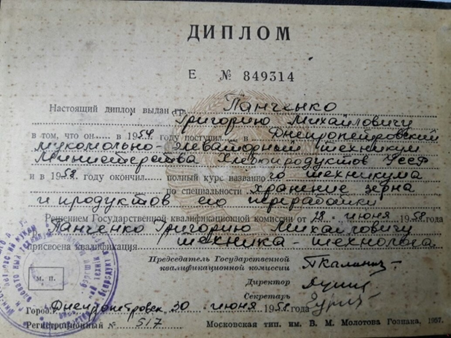 ДИПЛОМ
Е № 849314
Настоящий диплом выдан гр. Панченко
Григорию Михайловичу
в том, что он в 1954 году поступил в Днепропетровский
мукомольно-элеваторный техникум
Министерства Хлебопродуктов УССР
и в 1958 году окончил полный курс названного техникума
по специальности хранение зерна
и продуктов его переработки
Решением Государственной квалификационной комиссии от 28 июня 1958 г.
Панченко Григорию Михайловичу
присвоена квалификация техника-технолога
Председатель Государственной
квалификационной комиссии
Директор
Секретарь
М. П.
Город Днепропетровск 30 июня 1958 г.
Регистрационный № 517
Московская тип. им. В. М. Молотова Гознака, 1957.